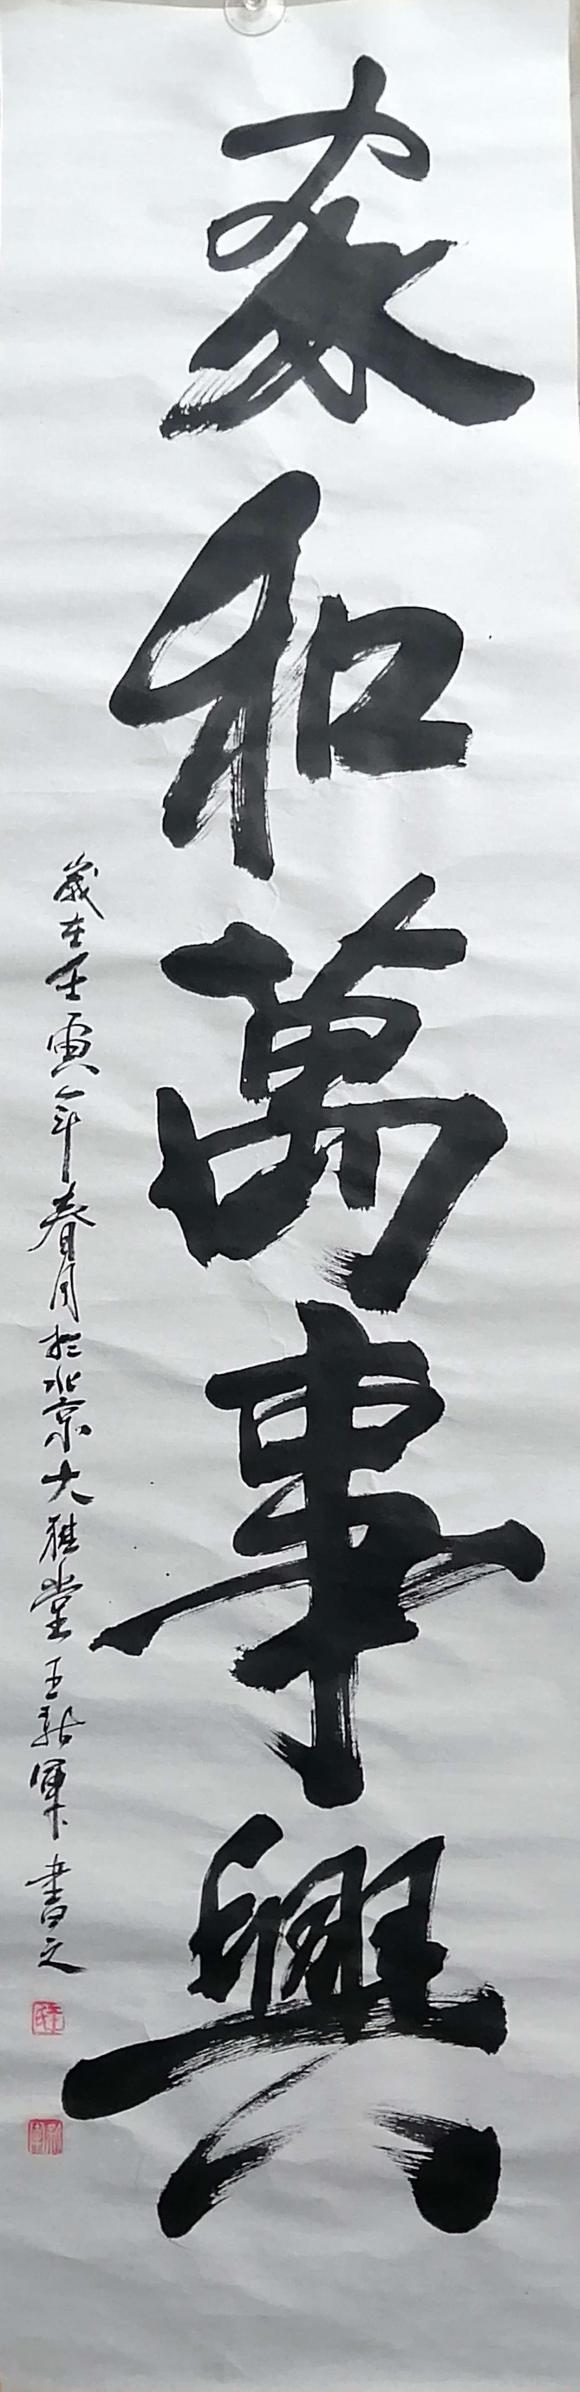 家和萬事興
歲在壬寅年春月於北京大雅堂王新軍書之